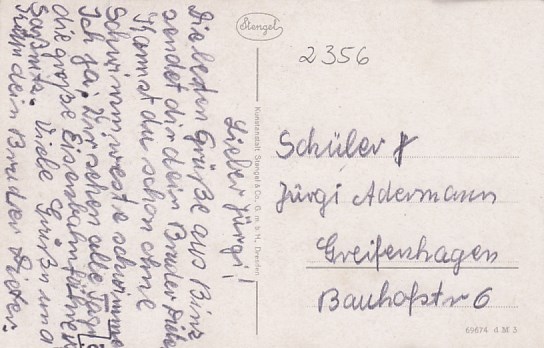 Lieber Jürgi!
Die besten Grüße aus Binz
sendet dir dein Bruder Dieter
Kannst du schon ohne
Schwimmweste schwimmen
Ich ja. Wir sehen alle Tage
die große Eisenbahnfähre
Saßnitz. Viele Grüße und
dein Bruder Dieter.
Stengel
Kunstanstalt Stengel & Co., G. m. b. H., Dresden
2356
Schüler
Jürgi Adermann
Greifenhagen
Bauhofstr 6
69674 d M 3